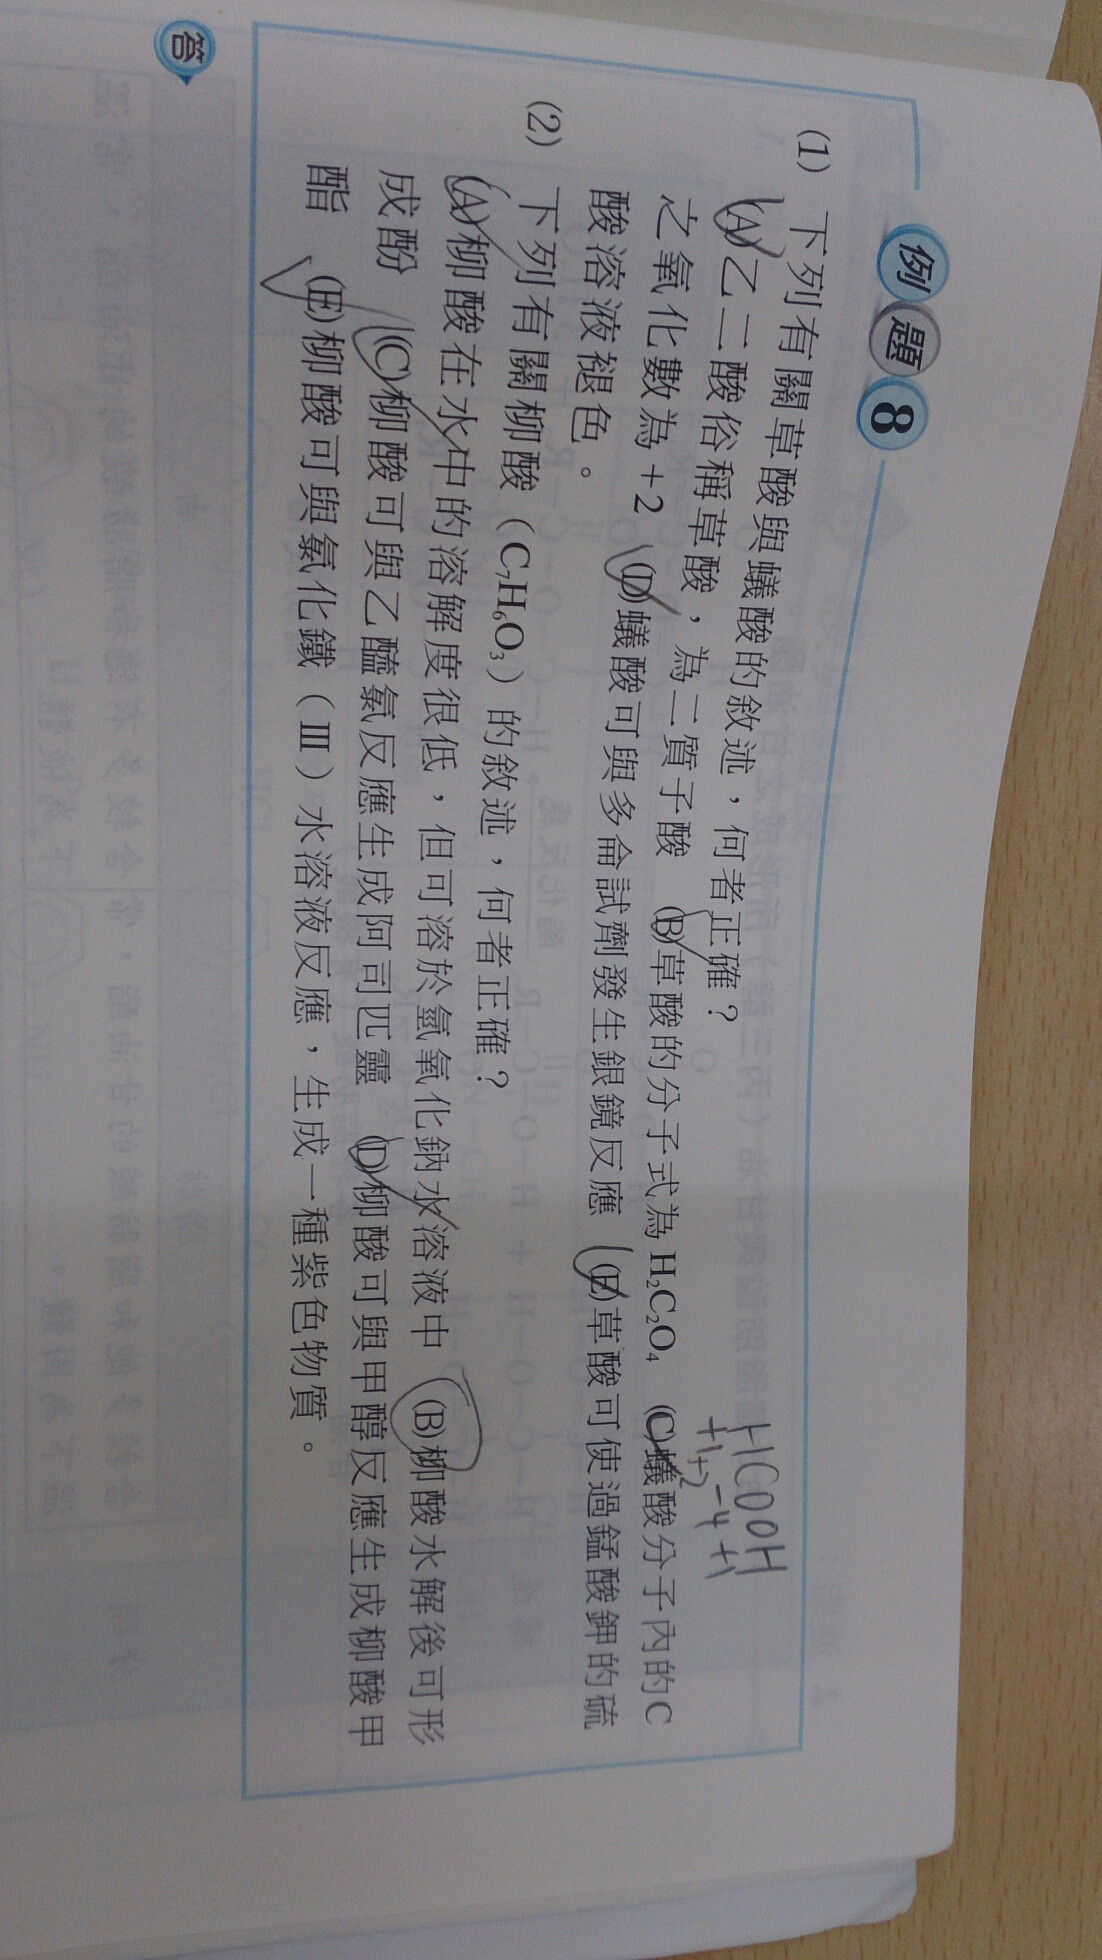 例題8
(1) 下列有關草酸與蟻酸的敘述，何者正確？
(A)乙二酸俗稱草酸，為二質子酸 (B)草酸的分子式為H₂C₂O₄ (C)蟻酸分子內的C
之氧化數為+2 (D)蟻酸可與多侖試劑發生銀鏡反應 (E)草酸可使過錳酸鉀的硫
酸溶液褪色。
HCOOH
+1+2-4+1
(2) 下列有關柳酸（C₇H₆O₃）的敘述，何者正確？
(A)柳酸在水中的溶解度很低，但可溶於氫氧化鈉水溶液中 (B)柳酸水解後可形
成酚 (C)柳酸可與乙醯氯反應生成阿司匹靈 (D)柳酸可與甲醇反應生成柳酸甲
酯 (E)柳酸可與氯化鐵（Ⅲ）水溶液反應，生成一種紫色物質。
答